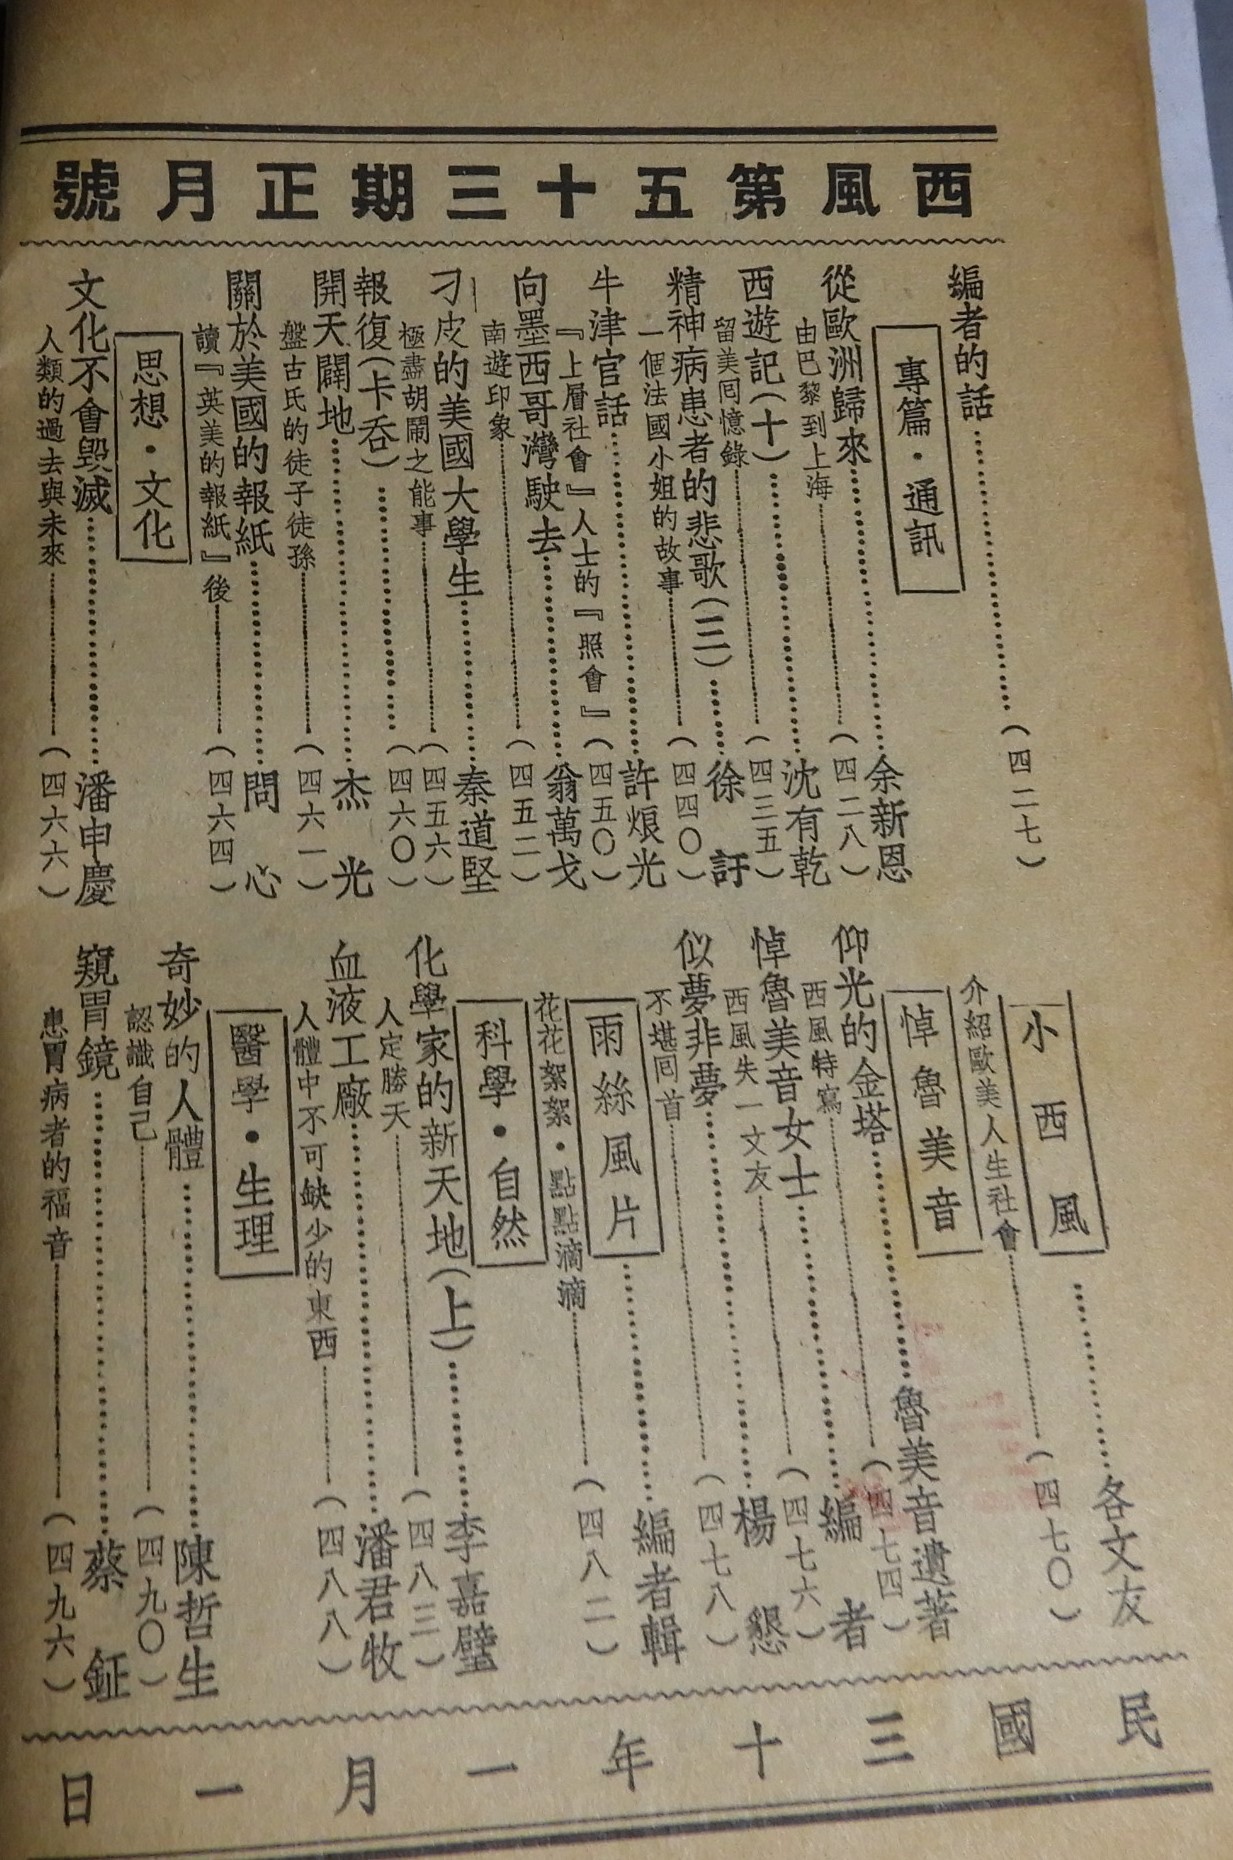 西風第五十三期正月號
編者的話…………(四二七)
專篇・通訊
從歐洲歸來…………余新恩
由巴黎到上海…………(四二八)
西遊記(十)…………沈有乾
留美囘憶錄…………(四三五)
精神病患者的悲歌(三)……徐訏
一個法國小姐的故事…………(四四〇)
牛津官話…………許烺光
『上層社會』人士的『照會』(四五〇)
向墨西哥灣駛去…………翁萬戈
南遊印象…………(四五二)
刁皮的美國大學生…………秦道堅
極盡胡鬧之能事…………(四五六)
報復(卡吞)…………(四六〇)
開天闢地…………杰光
盤古氏的徒子徒孫…………(四六一)
關於美國的報紙…………問心
讀『英美的報紙』後…………(四六四)
思想・文化
文化不會毀滅…………潘申慶
人類的過去與未來…………(四六六)
小西風…………各文友
介紹歐美人生社會…………(四七〇)
悼魯美音
仰光的金塔…………魯美音遺著
西風特寫…………(四七四)
悼魯美音女士…………編者
西風失一文友…………(四七六)
似夢非夢…………楊懇
不堪囘首…………(四七八)
雨絲風片…………編者輯
花花絮絮・點點滴滴…………(四八二)
科學・自然
化學家的新天地(上)…………李嘉璧
人定勝天…………(四八三)
血液工廠…………潘君牧
人體中不可缺少的東西…………(四八八)
醫學・生理
奇妙的人體…………陳哲生
認識自己…………(四九〇)
窺胃鏡…………蔡鉦
患胃病者的福音…………(四九六)
民國三十年一月一日